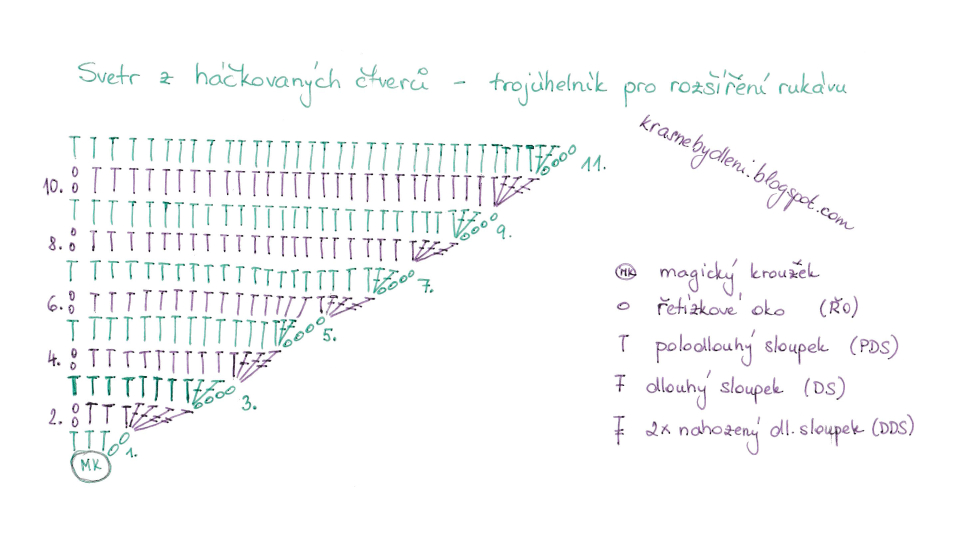 Svetr z háčkovaných čtverců - trojúhelník pro rozšíření rukávu
krasnebydleni.blogspot.com
11.
10.
9.
8.
7.
6.
5.
4.
3.
2.
1.
MK
MK magický kroužek
řetízkové oko (ŘO)
polodlouhý sloupek (PDS)
dlouhý sloupek (DS)
2x nahozený dl. sloupek (DDS)